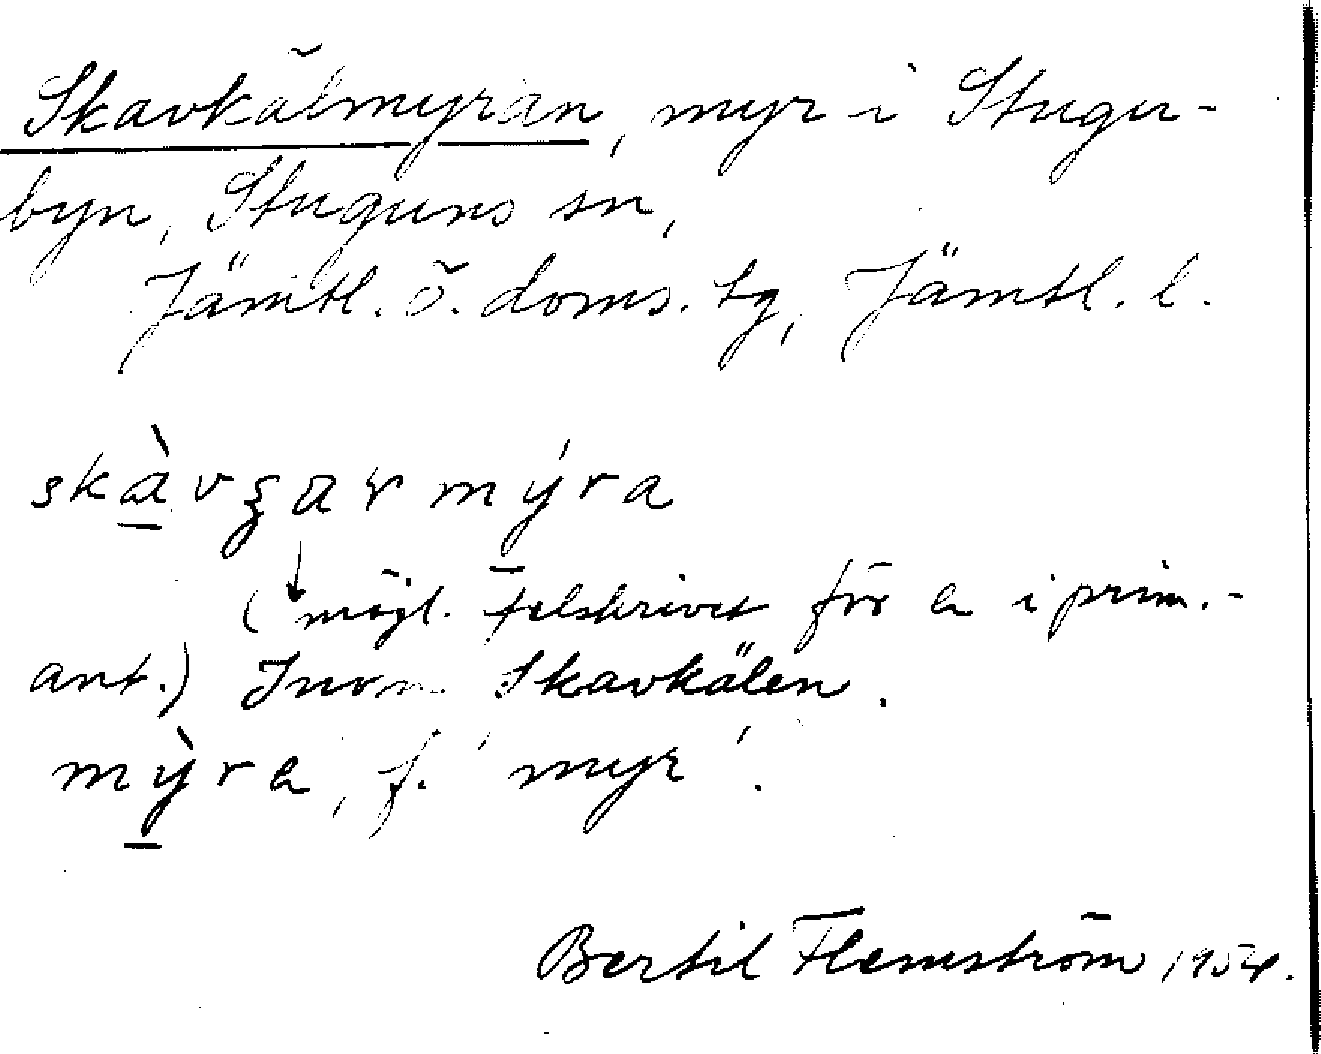 Skavkälmyran, myr i Stugu-
byn, Stuguns sn,
Jämtl. ö. doms. tg, Jämtl. l.
mýra
(mögl. felskrivet för a i prim.-
ant.) Inom Skavkälen.
mỳra, f. 'myr'.
Bertil Flemström 1954.